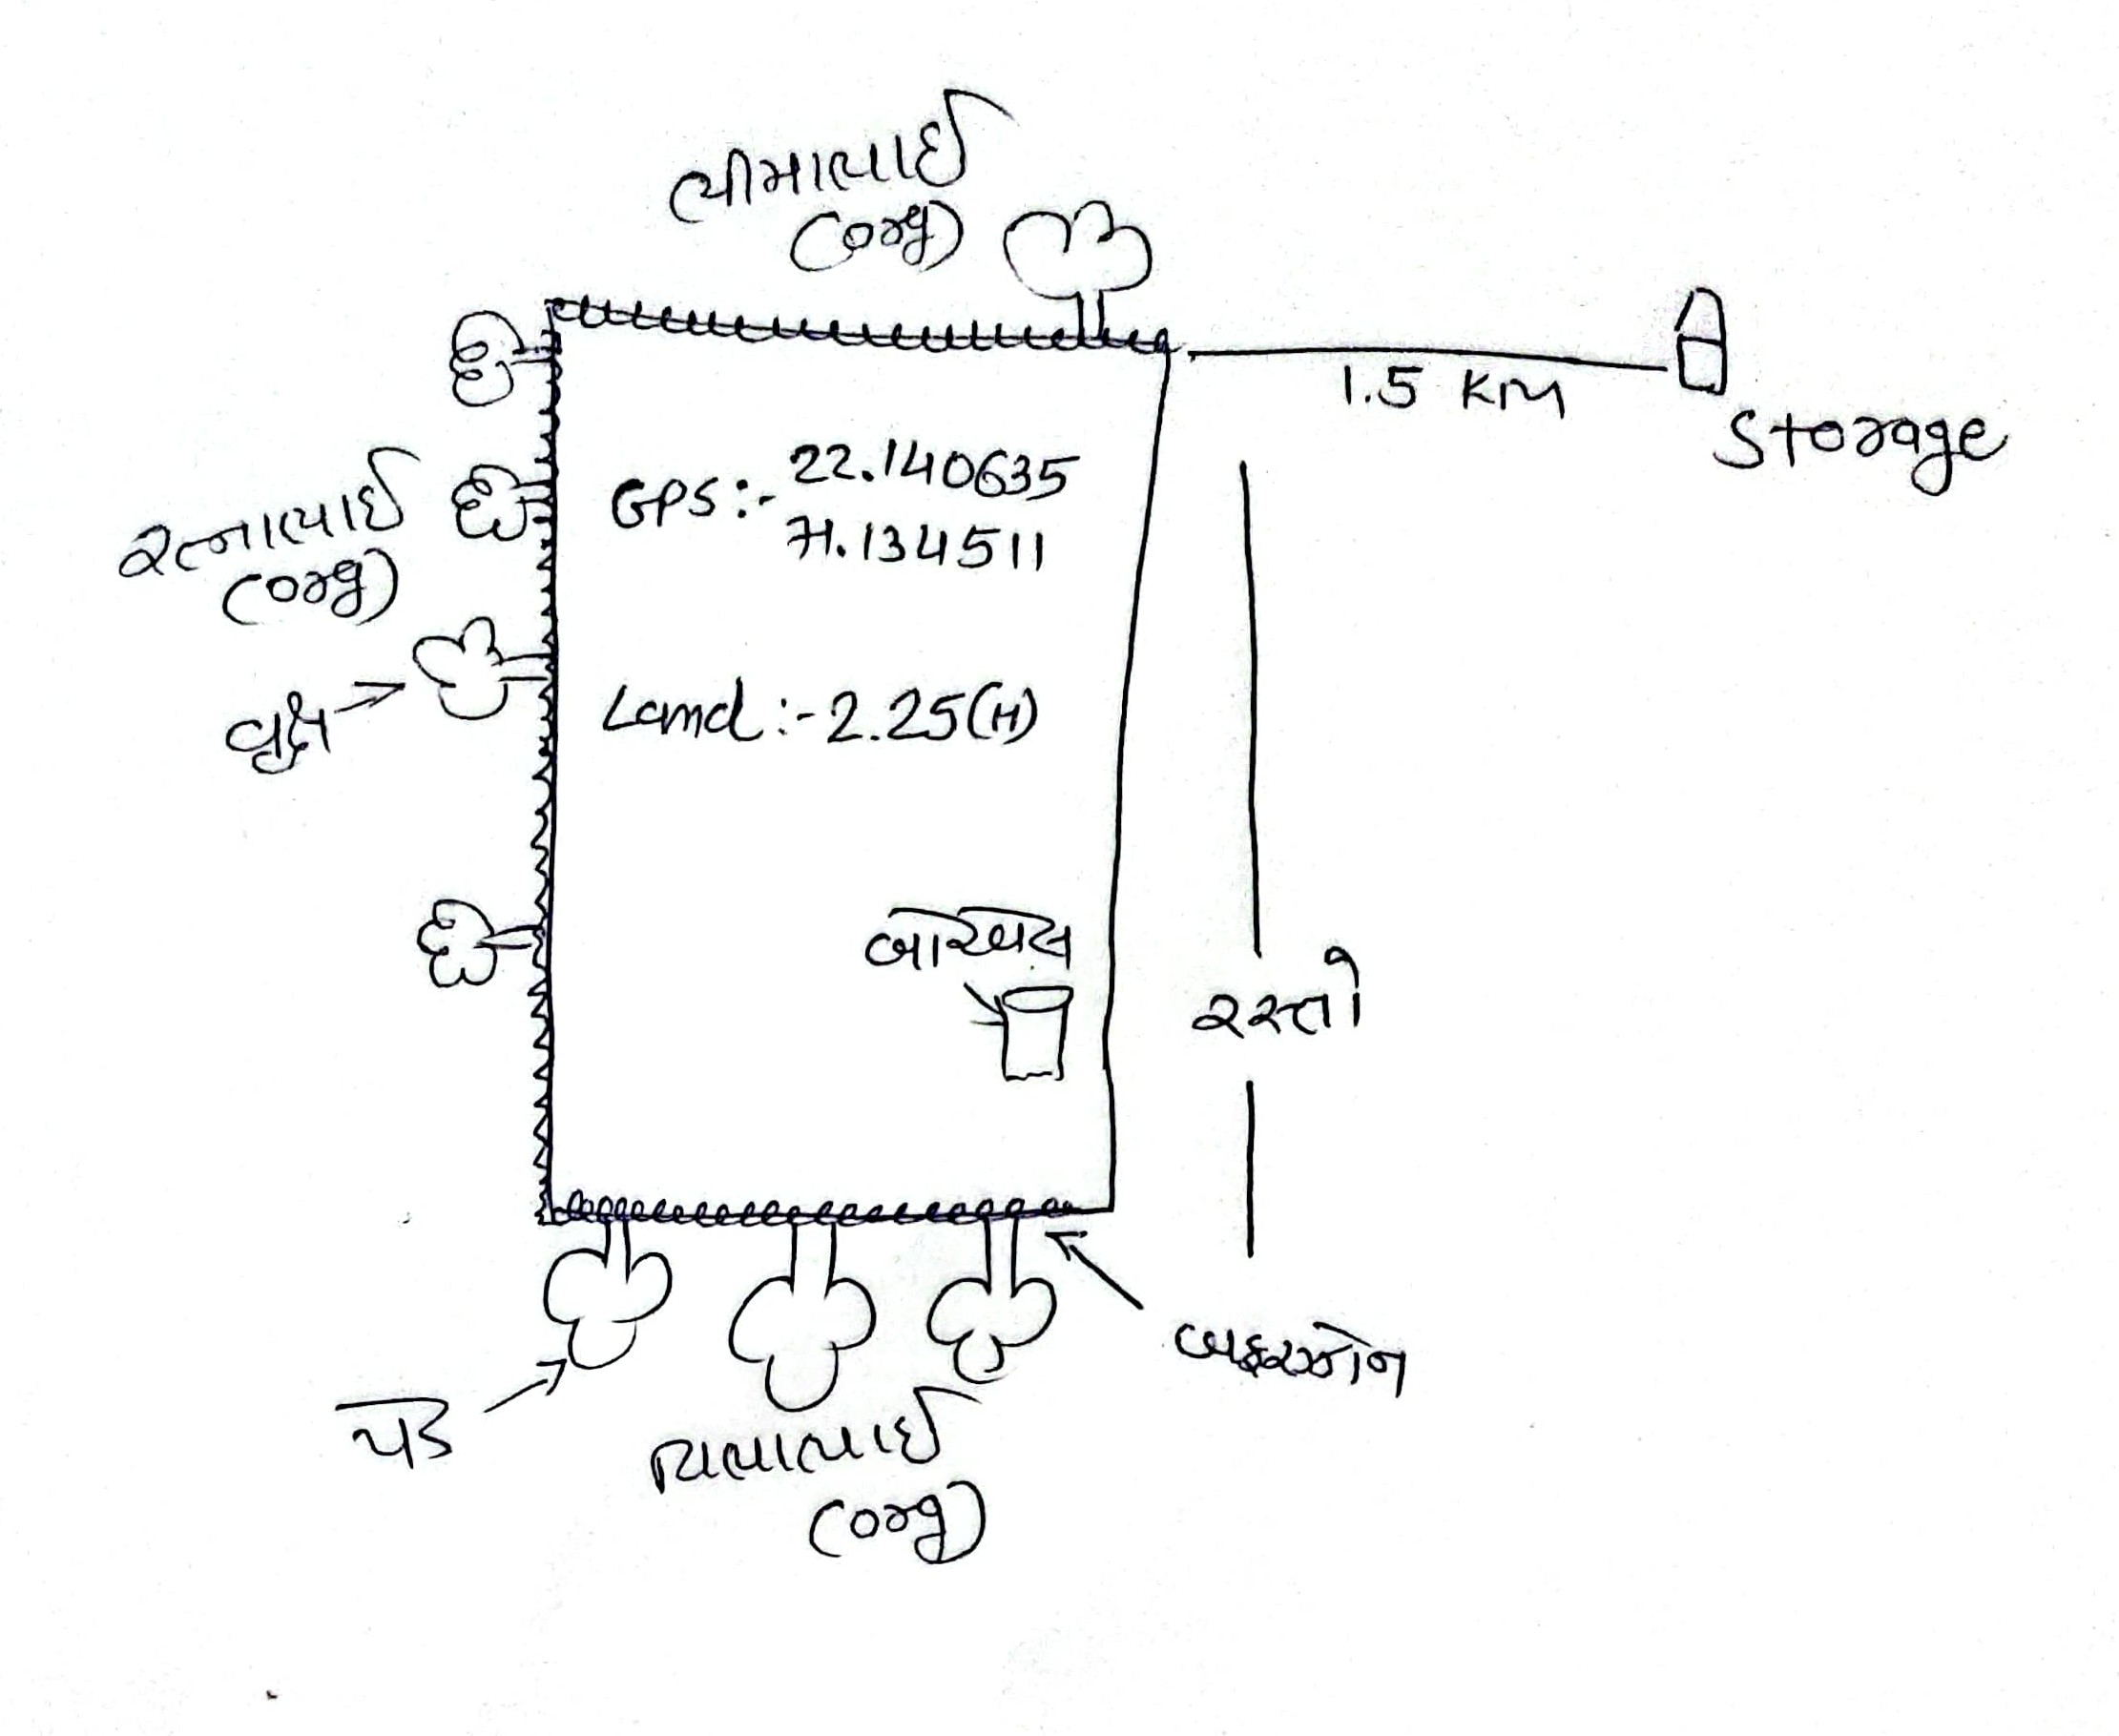 ભીમાભાઈ
(org)
1.5 KM
Storage
GPS:- 22.140635
71.134511
રત્નાભાઈ
(org)
Land :- 2.25(H)
વૃક્ષ
રસ્તો
બફરઝોન
પેડ
(org)